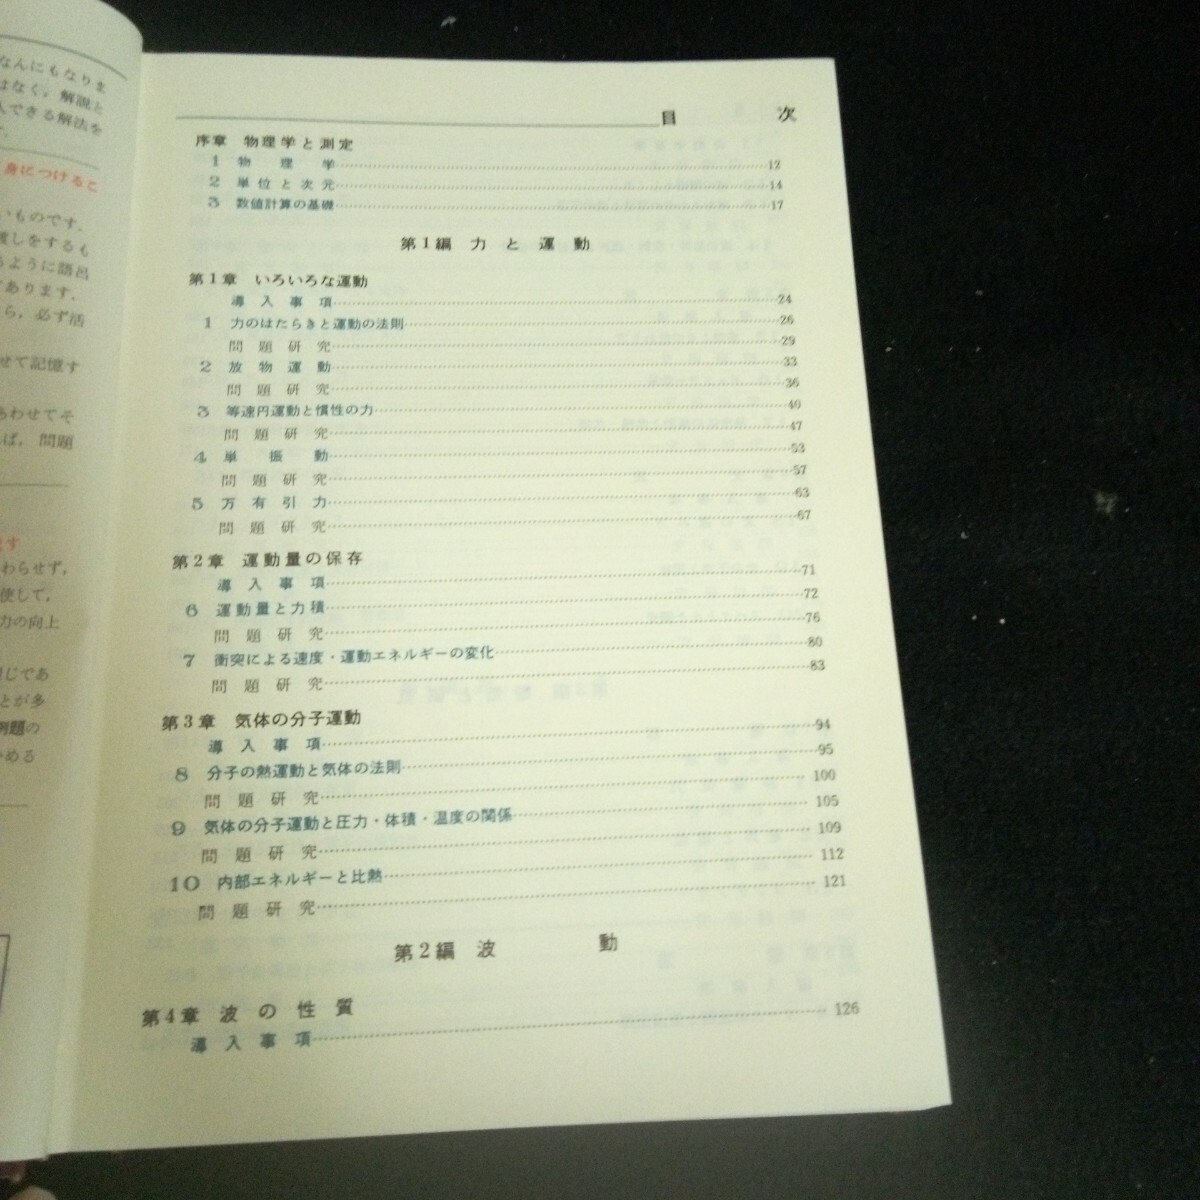 なんにもなりま
はなく，解説と
入できる解法を
す．
身につけるこ
いものです．
渡しをするも
るように語呂
てあります．
ら，必ず活
せて記憶す
あわせてそ
れば，問題
ます
わらせず，
使して，
力の向上
同じであ
とが多
例題の
かめる
目 次
序章 物理学と測定
1 物理学 12
2 単位と次元 14
3 数値計算の基礎 17
第1編 力と運動
第1章 いろいろな運動
導入事項 24
1 力のはたらきと運動の法則 26
問題研究 29
2 放物運動 33
問題研究 36
3 等速円運動と慣性の力 40
問題研究 47
4 単振動 53
問題研究 57
5 万有引力 63
問題研究 67
第2章 運動量の保存
導入事項 71
6 運動量と力積 72
問題研究 76
7 衝突による速度・運動エネルギーの変化 80
問題研究 83
第3章 気体の分子運動
導入事項 94
8 分子の熱運動と気体の法則 95
問題研究 100
9 気体の分子運動と圧力・体積・温度の関係 105
問題研究 109
10 内部エネルギーと比熱 112
問題研究 121
第2編 波動
第4章 波の性質
導入事項 126